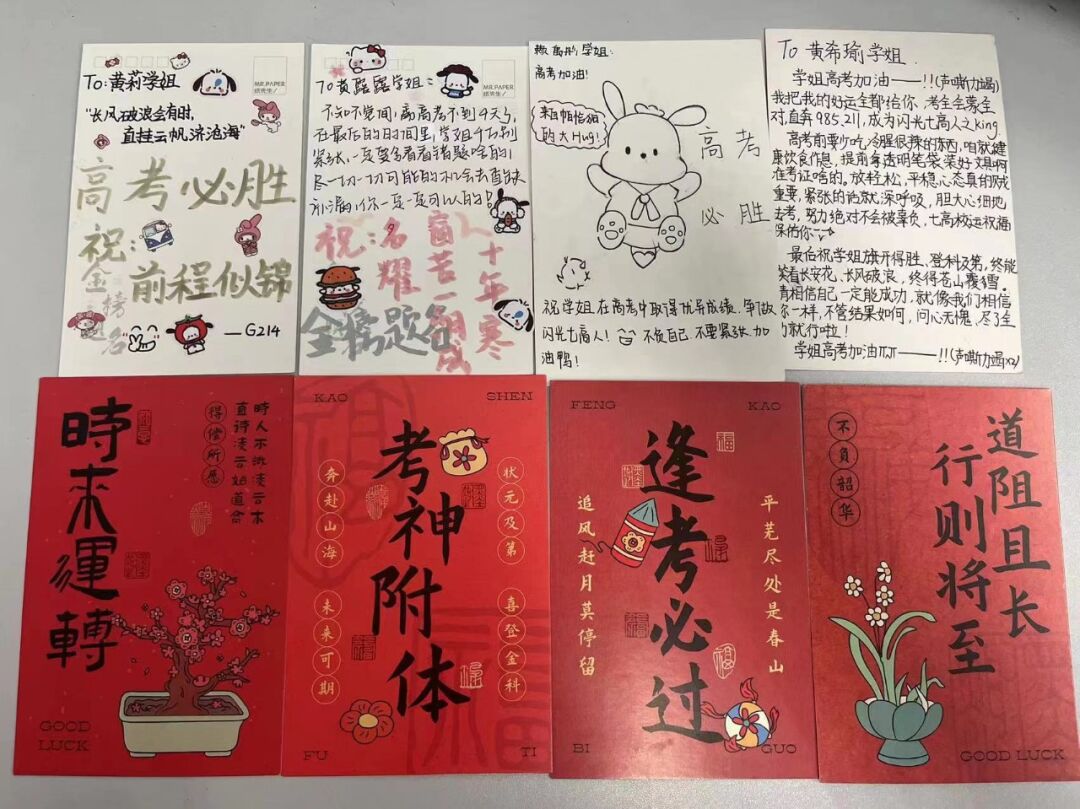 To:黄莉学姐
MR.PAPER
纸先生
"长风破浪会有时,
直挂云帆济沧海"
高考必胜
祝:
金榜
题名
前程似锦
—G214
To 黄露露学姐:
MR.PAPER
纸先生
不知不觉间,离高考不到4天了,
在最后的日时间里,学姐千万别
紧张,一定要多看看错题啥的!
尽一切一切可能的机会去查缺
补漏,你一定一定可以的!
祝:名耀
人十年寒
窗苦一朝成
金榜题名
学姐:
高考加油!
来自帕恰狗
的大Hug!
高考
必胜
祝学姐在高考中取得优异成绩,争做
闪光七高人! 不负自己,不要紧张,加
油鸭!
To 黄希瑜学姐.
学姐高考加油——!!(声嘶力竭)
我把我的好运全都给你,考全会蒙全
对,直奔985.211,成为闪光七高人之king.
高考前要少吃冷腥很辣的东西,咱就健
康饮食作息,提前拿透明笔袋装好文具啊
准考证啥的。放轻松,平稳心态真的贼
重要,紧张的话就深呼吸,胆大心细地
去考,努力绝对不会被辜负,七高校运祝福
保佑你~
最后祝学姐旗开得胜、登科及第,终能
笑看长安花,长风破浪,终得苍山覆雪.
请相信自己一定能成功,就像我们相信
你一样,不管结果如何,问心无愧,尽了全
力就行啦!
学姐高考加油——!!(声嘶力竭x2)
時来運轉
得偿所愿
時人不識凌云木
直待凌云始道高
GOOD
LUCK
KAO
SHEN
考神附体
奔赴山海
未来可期
状元及第
喜登金科
FU
TI
FENG
KAO
逢考必过
追风赶月莫停留
平芜尽处是春山
福
BI
GUO
不負韶华
道阻且长
行则将至
GOOD LUCK